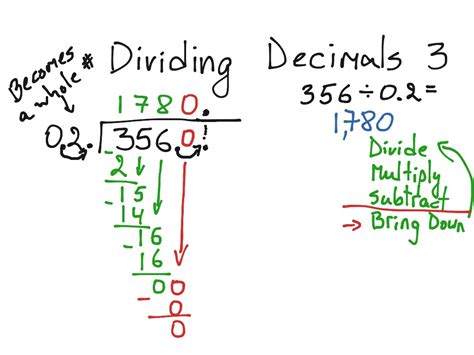 Dividing Decimals 3
Becomes
a whole #
356÷0.2=
1,780
1780.
0.2.)3560.
-2
15
-14
-16
16
00
-0
0
Divide
Multiply
Subtract
→ Bring Down